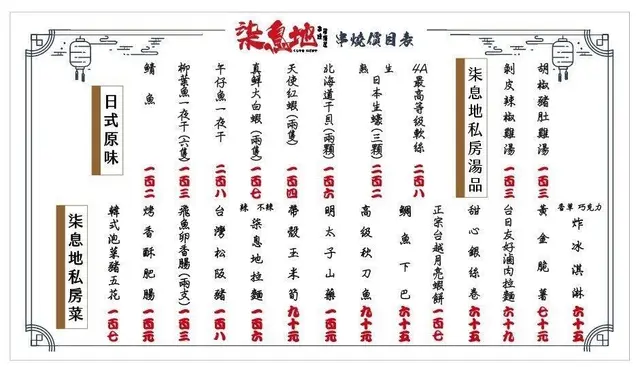 柒息地 串燒價目表
柒息地私房湯品
胡椒豬肚雞湯 一百三
剝皮辣椒雞湯 一百三
日式原味
4A最高等級軟絲 二百八
生 熟 日本生蠔(三顆) 二百二
北海道干貝(兩顆) 一百六
天使紅蝦(兩隻) 一百四
真鮮大白蝦(兩隻) 一百七
午仔魚一夜干 二百八
柳葉魚一夜干(六隻) 一百三
鯖魚 一百二
柒息地私房菜
香草 巧克力 炸冰淇淋 六十五
黃金脆薯 七十元
台日友好滷肉拉麵 六十九
甜心銀絲卷 六十五
正宗台越月亮蝦餅 一百七
鯛魚下巴 六十五
高級秋刀魚 九十元
明太子山藥 一百元
帶殼玉米筍 九十元
辣 不辣 柒息地拉麵 一百六
台灣松阪豬 一百八
飛魚卵香腸(兩支) 一百三
烤香酥肥腸 一百元
韓式泡菜豬五花 一百七